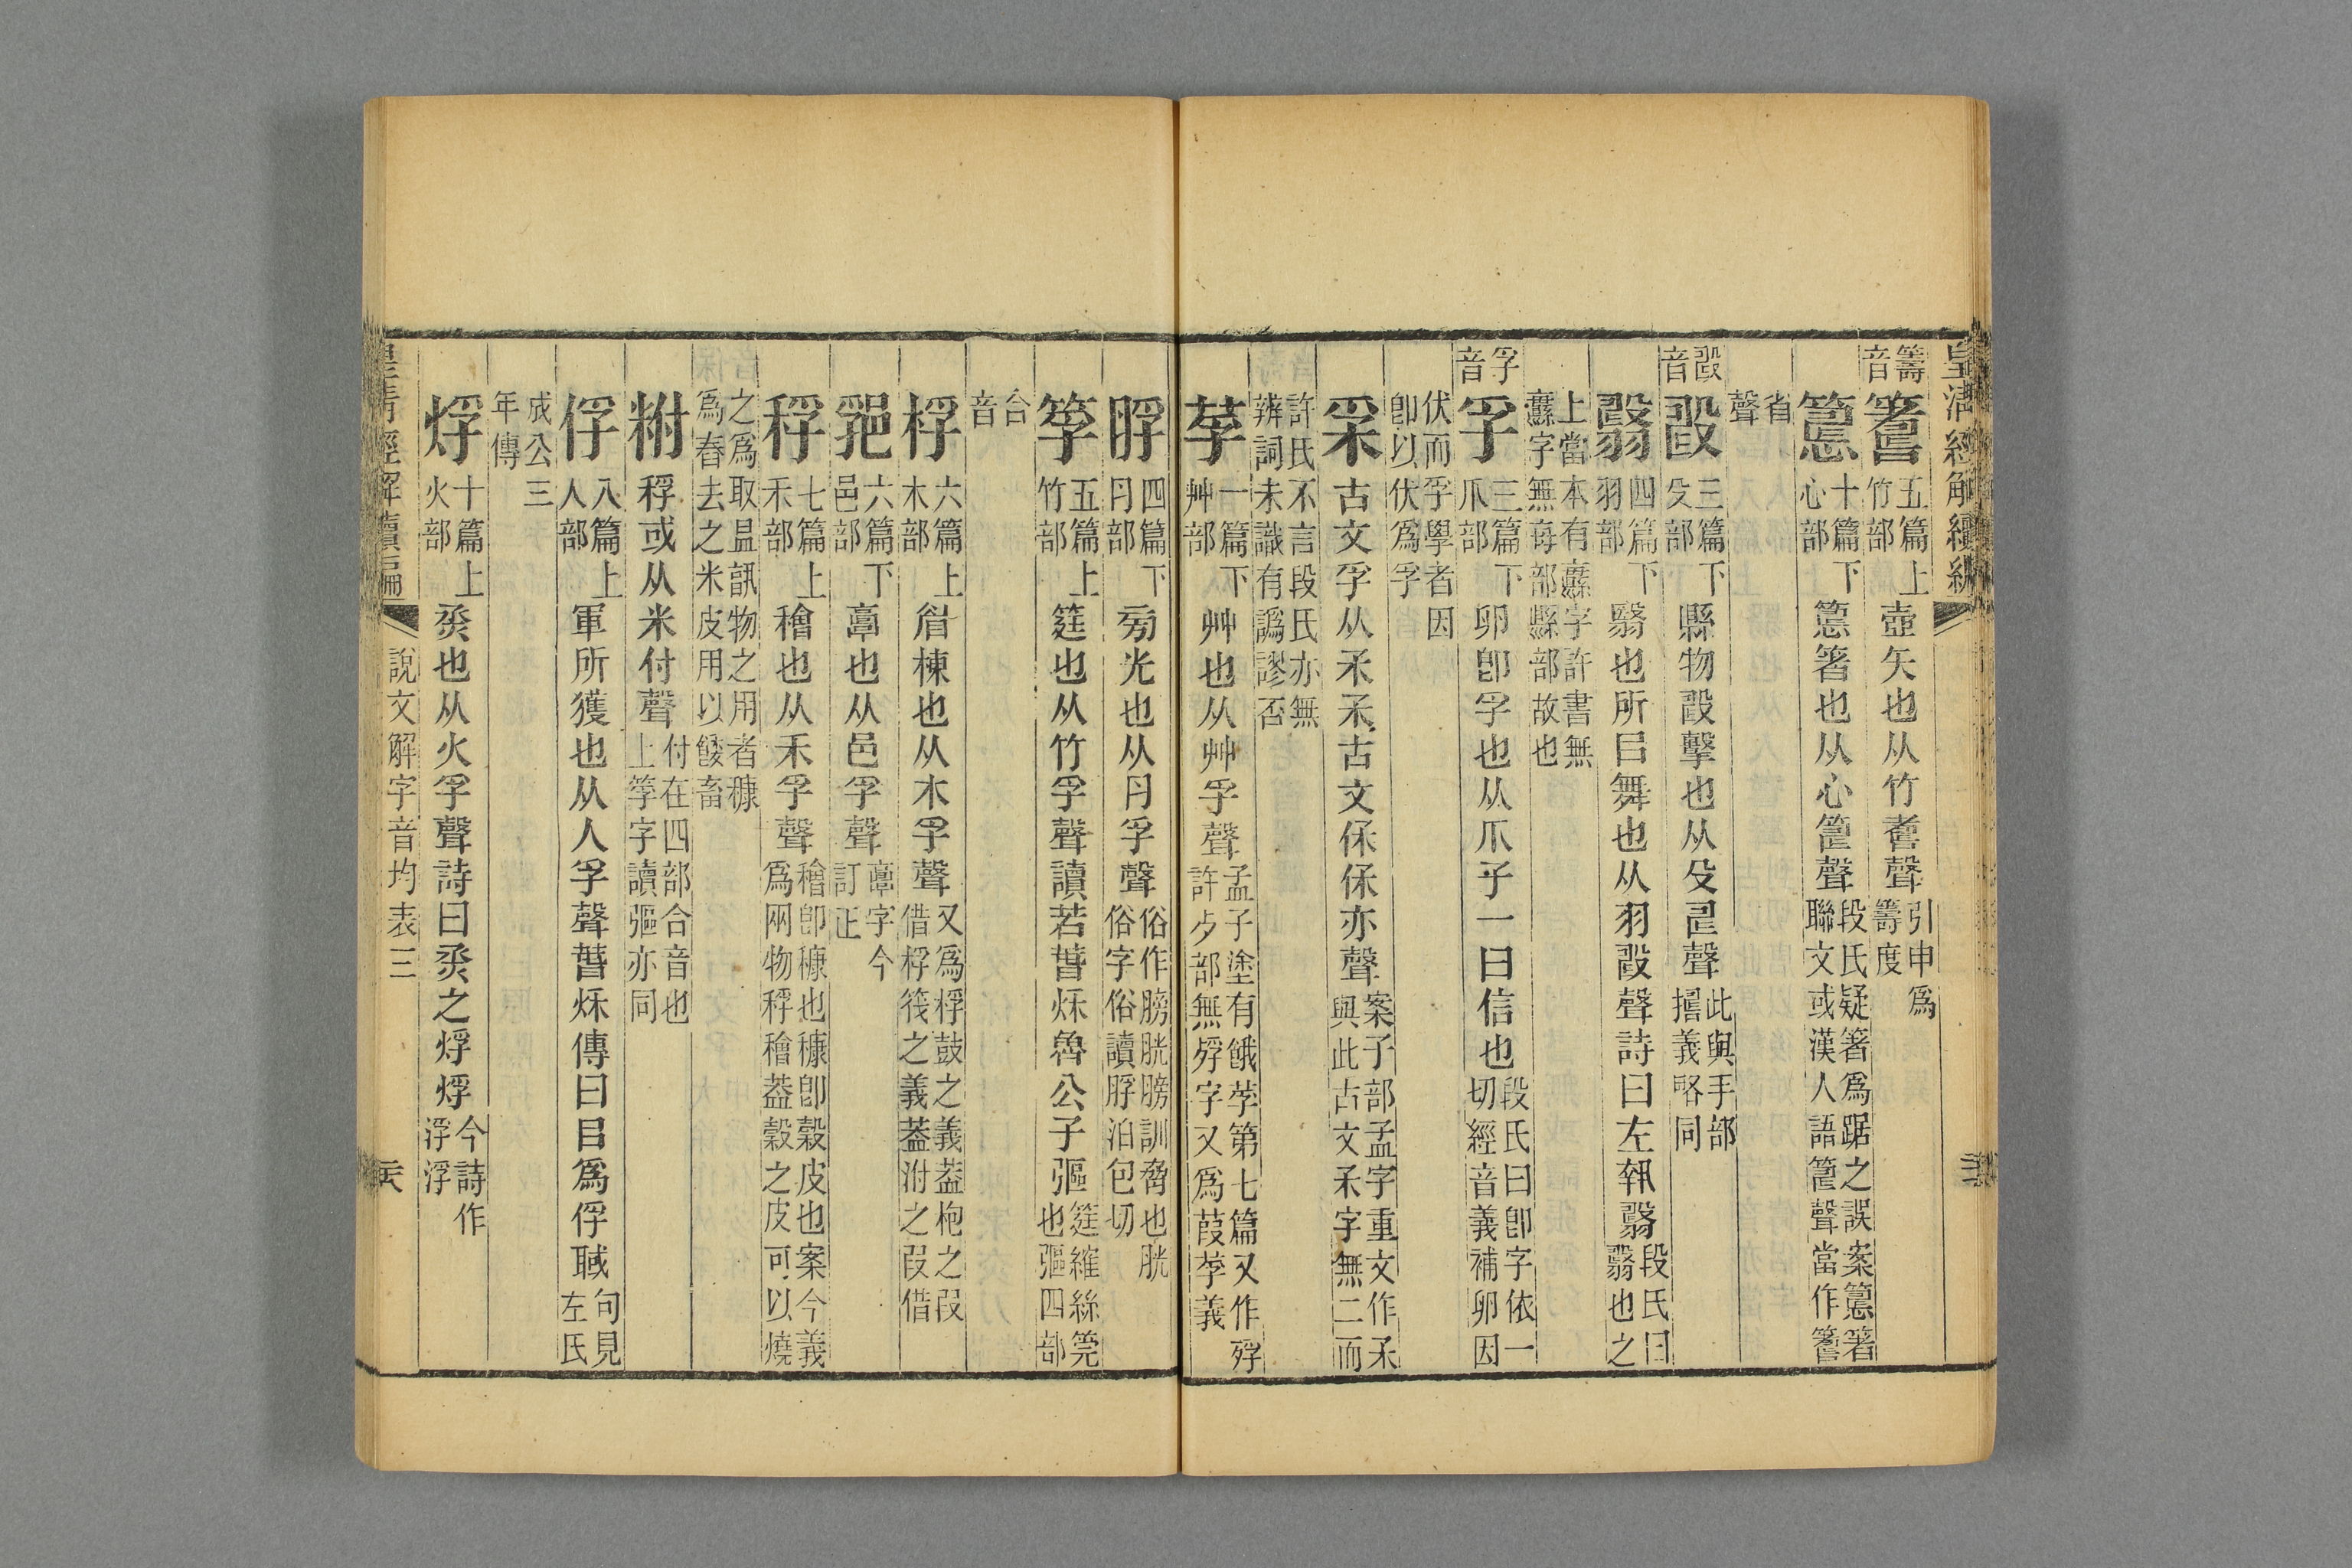 皇清經解續編
籌音 籌 五篇上竹部 壺矢也从竹壽聲 引申爲籌度
十篇下心部 箸也从心 聲 段氏疑箸爲踞之誤案 箸聯文或漢人語 聲當作
省聲
音 三篇下殳部 縣物 擊也从殳 聲 此與手部 義略同
翳 四篇下羽部 翳也所㠯舞也从羽 聲詩曰左執 段氏曰 翳也之
上當本有 字許書無 字無每部縣部故也
孚音 孚 三篇下爪部 卵卽孚也从爪子一曰信也 段氏曰卽字依一切經音義補卵因
伏而孚學者因卽以伏爲孚
古文孚从𤓽𤓽古文保保亦聲 案子部孟字重文作𤓽與此古文𤓽字無二而
許氏不言段氏亦無辨詞未識有譌謬否
莩 一篇下艸部 艸也从艸孚聲 孟子塗有餓莩第七篇又作殍許歺部無殍字又爲葭莩義
脬 四篇下肉部 旁光也从肉孚聲 俗作膀胱膀訓脅也胱俗字俗讀脬泊包切
筟 五篇上竹部 筳也从竹孚聲讀若春秋魯公子彄 筳維絲筦也彄四部
合音
桴 六篇上木部 眉棟也从木孚聲 又爲桴鼓之義葢枹之叚借桴筏之義葢泭之叚借
郛 六篇下邑部 𩫏也从邑孚聲 𩫏字今訂正
稃 七篇上禾部 穭也从禾孚聲 穭卽穅也穅卽榖皮也案今義爲网物稃穭葢榖之皮可以燒
之爲取昷訊物之用者穅爲舂去之米皮用以餧畜
䊇 稃或从米付聲 付在四部合音也上筟字讀彄亦同
俘 八篇上人部 軍所獲也从人孚聲春秋傳曰㠯爲俘聝 句見左氏
成公三年傳
烰 十篇上火部 烝也从火孚聲詩曰烝之烰烰 今詩作浮浮
皇清經解續編 說文解字音均表三